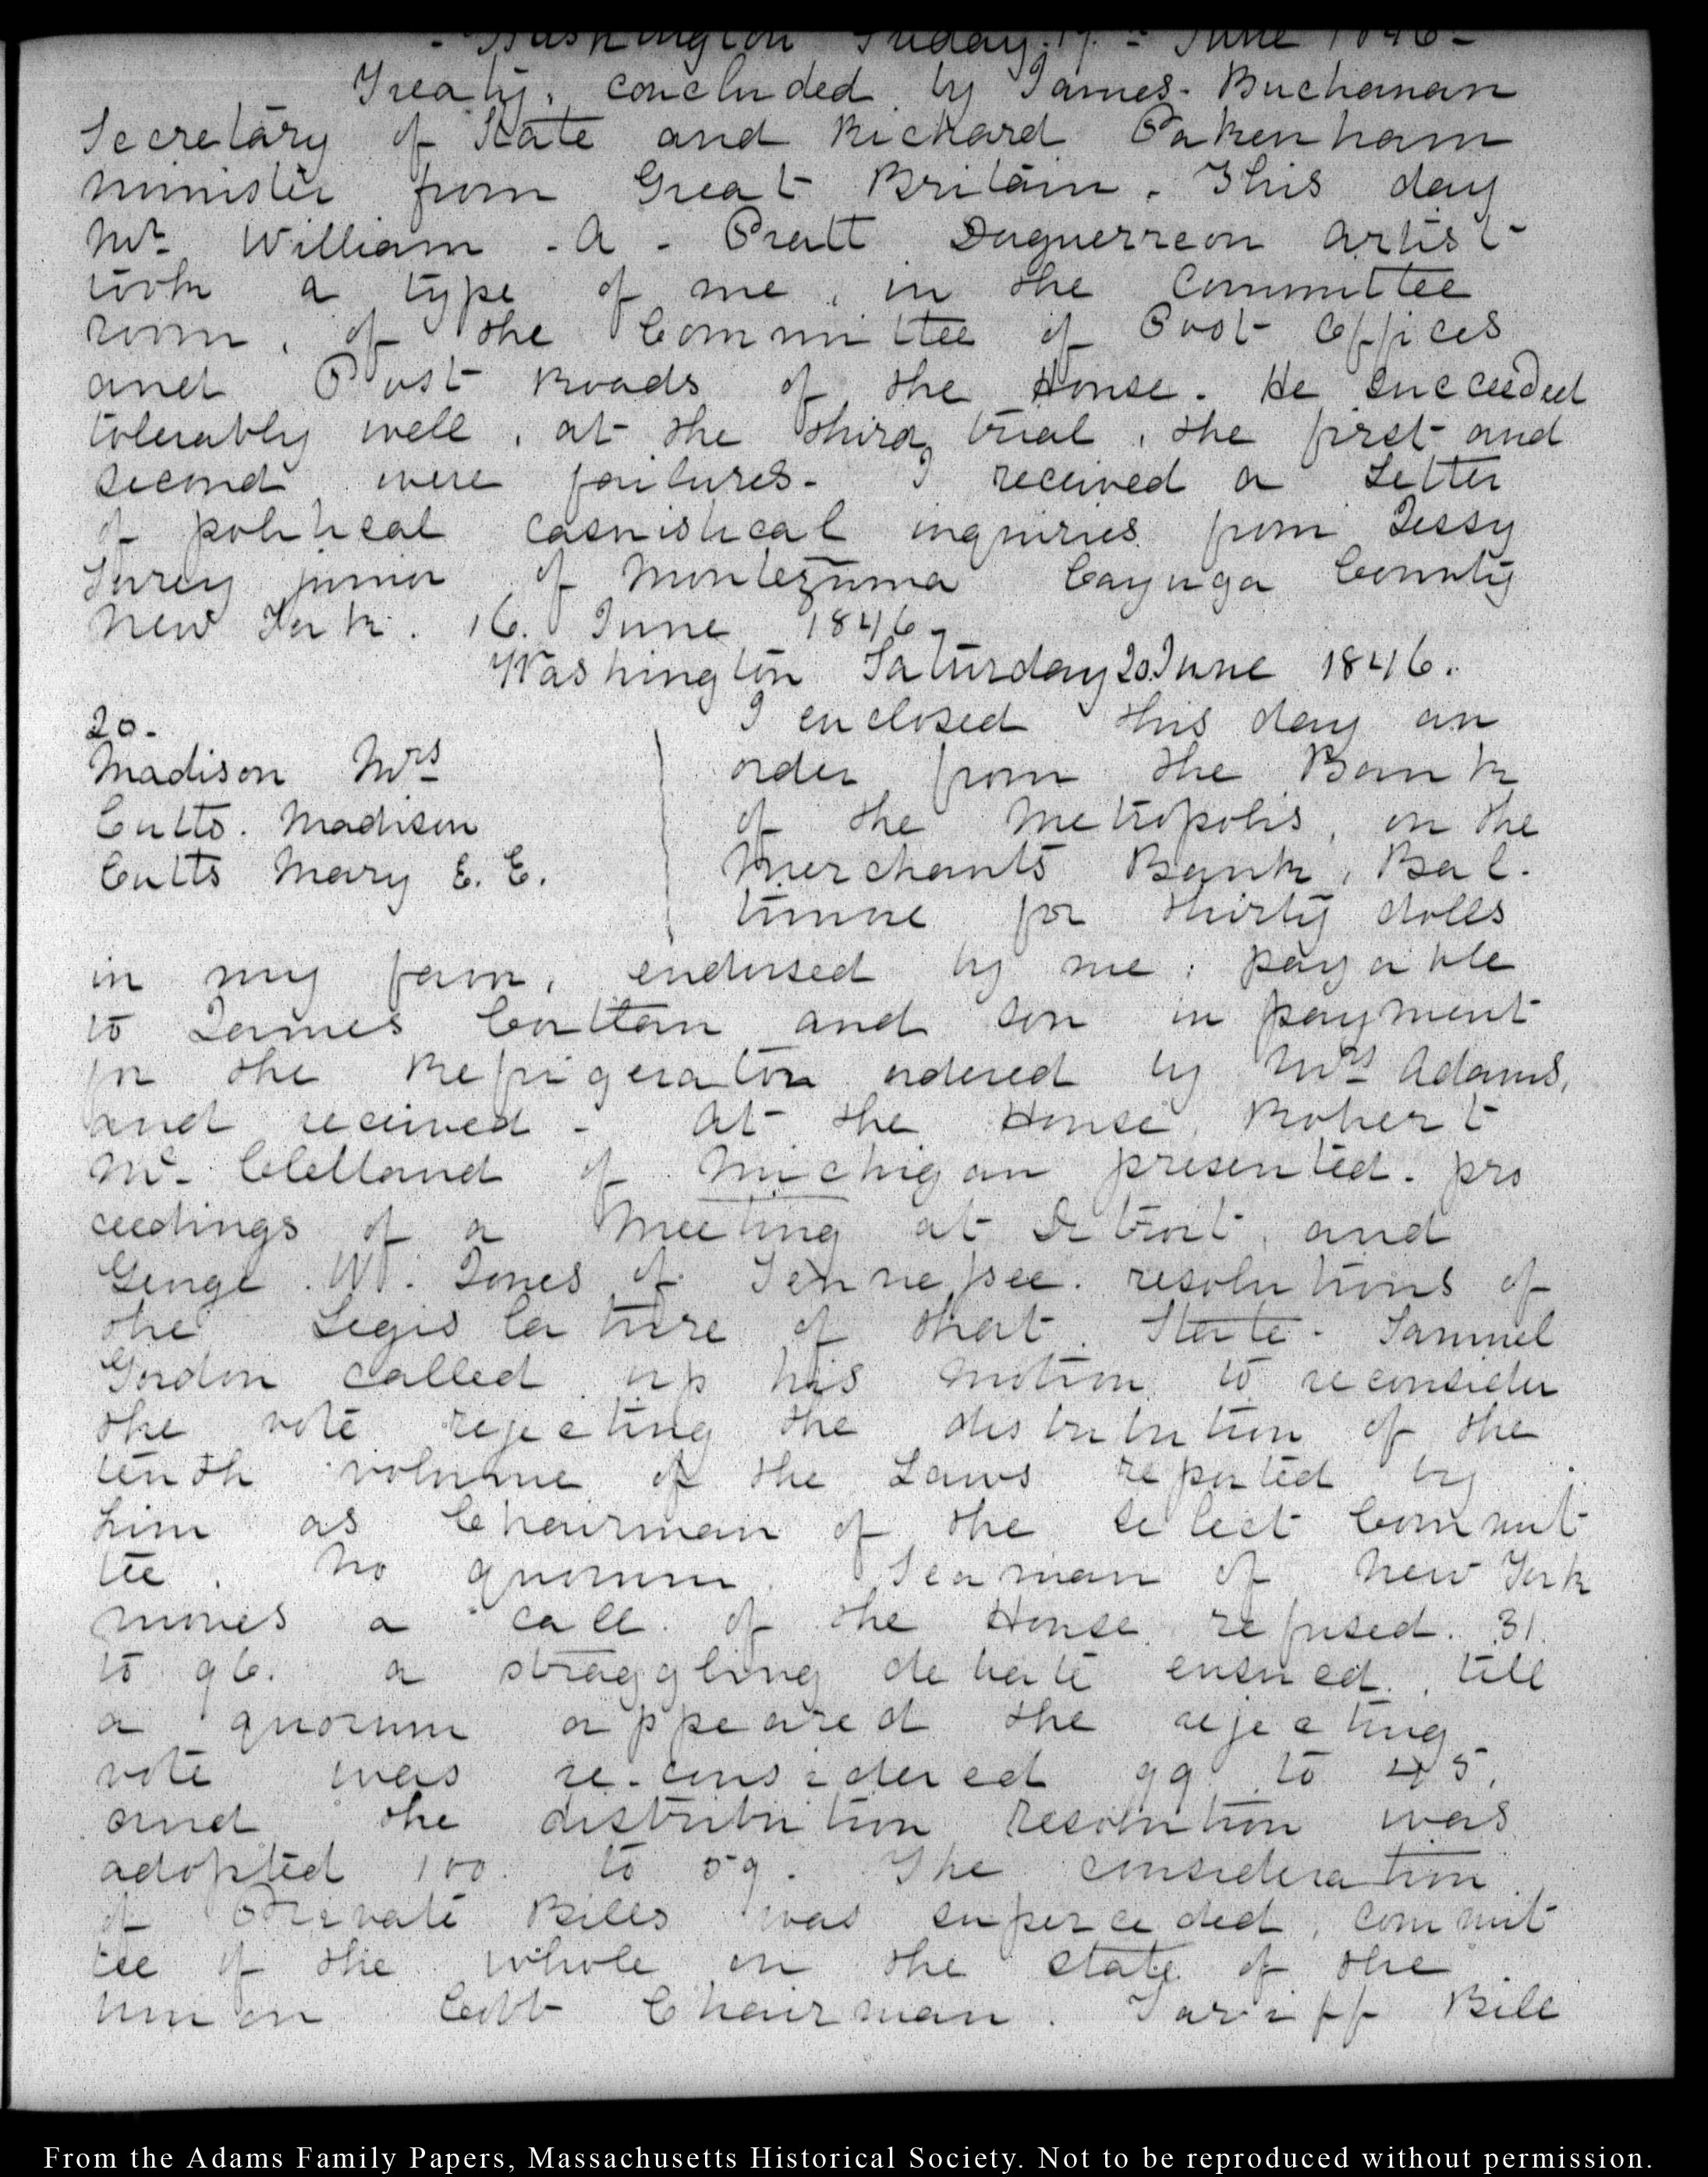 - Washington Friday. 19. - June 1846 -
Treaty, concluded by James Buchanan
Secretary of State and Richard Pakenham
minister from Great Britain. This day
Mr. William - A - Pratt Daguerreon artist
took a type of me, in the Committee
room, of the Committee of Post Offices
and Post Roads of the House. He succeeded
tolerably well, at the third trial, the first and
second were failures - I received a Letter
of political casuistical inquiries from Jessy
junior of Montezuma Cayuga County
New York. 16. June 1846 -
Washington Saturday 20. June 1846.
20.
Madison Mrs
Cutts. Madison
Cutts Mary E. E.
I enclosed this day an
order from the Bank
of the Metropolis, on the
Merchants Bank, Bal.
timore for thirty dolls
in my favr, endorsed by me, payable
to James Cortlan and son in payment
for the Refrigerator ordered by Mrs Adams,
and received - At the House, Robert
Mc. Clelland of Michigan presented. pro
ceedings of a Meeting at Detroit, and
George. W. Jones of Tennessee. resolutions of
the Legislature of that State. Samuel
Gordon called up his motion to reconsider
the vote rejecting the distribution of the
tenth volume of the Laws reported by
him as Chairman of the select Commit
tee. No quorum. Seaman of New York
moves a call of the House refused. 31.
to 96. a straggling debate ensued, till
a quorum appeared the rejecting
vote was re-considered 99 to 45,
and the distribution resolution was
adopted 100 to 59. The consideration
of Private Bills was superceded, commit
tee of the whole on the state of the
union Cobb Chairman. Tariff Bill
From the Adams Family Papers, Massachusetts Historical Society. Not to be reproduced without permission.